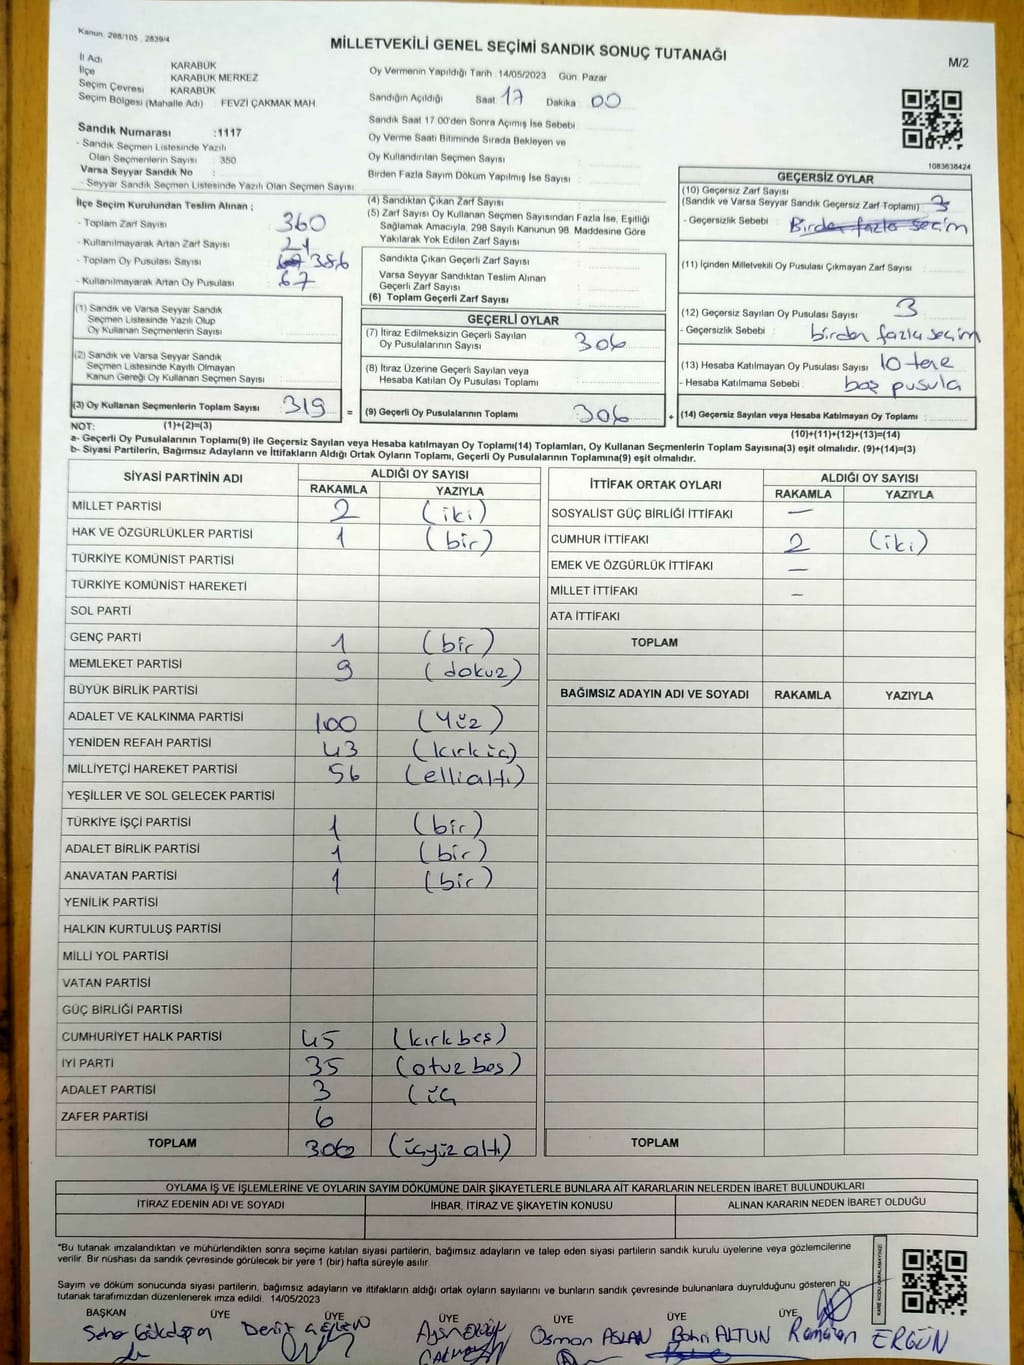 Kanun. 298/105 , 2839/4
MİLLETVEKİLİ GENEL SEÇİMİ SANDIK SONUÇ TUTANAĞI
M/2
İl Adı KARABÜK
İlçe KARABÜK MERKEZ
Seçim Çevresi KARABÜK
Seçim Bölgesi (Mahalle Adı) FEVZİ ÇAKMAK MAH
Oy Vermenin Yapıldığı Tarih 14/05/2023 Gün Pazar
Sandığın Açıldığı Saat 17 Dakika 00
Sandık Saat 17 00'den Sonra Açımış İse Sebebi
Oy Verme Saati Bitiminde Sırada Bekleyen ve
Oy Kullandırılan Seçmen Sayısı
Birden Fazla Sayım Döküm Yapılmış İse Sayısı
Sandık Numarası :1117
- Sandık Seçmen Listesinde Yazılı
Olan Seçmenlerin Sayısı : 350
Varsa Seyyar Sandık No :
- Seyyar Sandık Seçmen Listesinde Yazılı Olan Seçmen Sayısı
1083636424
İlçe Seçim Kurulundan Teslim Alınan ;
- Toplam Zarf Sayısı : 360
- Kullanılmayarak Artan Zarf Sayısı : 21
- Toplam Oy Pusulası Sayısı : 386
- Kullanılmayarak Artan Oy Pusulası : 67
(1) Sandık ve Varsa Seyyar Sandık
Seçmen Listesinde Yazılı Olup
Oy Kullanan Seçmenlerin Sayısı :
(2) Sandık ve Varsa Seyyar Sandık
Seçmen Listesinde Kayıtlı Olmayan
Kanun Gereği Oy Kullanan Seçmen Sayısı :
(3) Oy Kullanan Seçmenlerin Toplam Sayısı : 319 =
(1)+(2)=(3)
(4) Sandıktan Çıkan Zarf Sayısı :
(5) Zarf Sayısı Oy Kullanan Seçmen Sayısından Fazla İse, Eşitliği
Sağlamak Amacıyla, 298 Sayılı Kanunun 98. Maddesine Göre
Yakılarak Yok Edilen Zarf Sayısı :
Sandıkta Çıkan Geçerli Zarf Sayısı :
Varsa Seyyar Sandıktan Teslim Alınan
Geçerli Zarf Sayısı :
(6) Toplam Geçerli Zarf Sayısı :
GEÇERLİ OYLAR
(7) İtiraz Edilmeksizin Geçerli Sayılan
Oy Pusulalarının Sayısı : 306
(8) İtiraz Üzerine Geçerli Sayılan veya
Hesaba Katılan Oy Pusulası Toplamı :
(9) Geçerli Oy Pusulalarının Toplamı : 306 +
GEÇERSİZ OYLAR
(10) Geçersiz Zarf Sayısı
(Sandık ve Varsa Seyyar Sandık Geçersiz Zarf Toplamı) 3
- Geçersizlik Sebebi : Birden fazla seçim
(11) İçinden Milletvekili Oy Pusulası Çıkmayan Zarf Sayısı :
(12) Geçersiz Sayılan Oy Pusulası Sayısı : 3
- Geçersizlik Sebebi : birden fazla seçim
(13) Hesaba Katılmayan Oy Pusulası Sayısı : 10 tane
- Hesaba Katılmama Sebebi : boş pusula
(14) Geçersiz Sayılan veya Hesaba Katılmayan Oy Toplamı :
(10)+(11)+(12)+(13)=(14)
NOT:
a- Geçerli Oy Pusulalarının Toplamı(9) ile Geçersiz Sayılan veya Hesaba katılmayan Oy Toplamı(14) Toplamları, Oy Kullanan Seçmenlerin Toplam Sayısına(3) eşit olmalıdır. (9)+(14)=(3)
b- Siyasi Partilerin, Bağımsız Adayların ve İttifakların Aldığı Ortak Oyların Toplamı, Geçerli Oy Pusulalarının Toplamına(9) eşit olmalıdır.
SİYASİ PARTİNİN ADI ALDIĞI OY SAYISI
RAKAMLA YAZIYLA
MİLLET PARTİSİ 2 (iki)
HAK VE ÖZGÜRLÜKLER PARTİSİ 1 (bir)
TÜRKİYE KOMÜNİST PARTİSİ
TÜRKİYE KOMÜNİST HAREKETİ
SOL PARTİ
GENÇ PARTİ 1 (bir)
MEMLEKET PARTİSİ 9 (dokuz)
BÜYÜK BİRLİK PARTİSİ
ADALET VE KALKINMA PARTİSİ 100 (Yüz)
YENİDEN REFAH PARTİSİ 43 (kırk üç)
MİLLİYETÇİ HAREKET PARTİSİ 56 (elli altı)
YEŞİLLER VE SOL GELECEK PARTİSİ
TÜRKİYE İŞÇİ PARTİSİ 1 (bir)
ADALET BİRLİK PARTİSİ 1 (bir)
ANAVATAN PARTİSİ 1 (bir)
YENİLİK PARTİSİ
HALKIN KURTULUŞ PARTİSİ
MİLLİ YOL PARTİSİ
VATAN PARTİSİ
GÜÇ BİRLİĞİ PARTİSİ
CUMHURİYET HALK PARTİSİ 45 (kırk beş)
İYİ PARTİ 35 (otuz beş)
ADALET PARTİSİ 3 (üç
ZAFER PARTİSİ 6
TOPLAM 306 (üçyüz altı)
İTTİFAK ORTAK OYLARI ALDIĞI OY SAYISI
RAKAMLA YAZIYLA
SOSYALİST GÜÇ BİRLİĞİ İTTİFAKI —
CUMHUR İTTİFAKI 2 (iki)
EMEK VE ÖZGÜRLÜK İTTİFAKI —
MİLLET İTTİFAKI —
ATA İTTİFAKI
TOPLAM
BAĞIMSIZ ADAYIN ADI VE SOYADI RAKAMLA YAZIYLA
TOPLAM
OYLAMA İŞ VE İŞLEMLERİNE VE OYLARIN SAYIM DÖKÜMÜNE DAİR ŞİKAYETLERLE BUNLARA AİT KARARLARIN NELERDEN İBARET BULUNDUKLARI
İTİRAZ EDENİN ADI VE SOYADI İHBAR, İTİRAZ VE ŞİKAYETİN KONUSU ALINAN KARARIN NEDEN İBARET OLDUĞU
*Bu tutanak imzalandıktan ve mühürlendikten sonra seçime katılan siyasi partilerin, bağımsız adayların ve talep eden siyasi partilerin sandık kurulu üyelerine veya gözlemcilerine
verilir. Bir nüshası da sandık çevresinde görülecek bir yere 1 (bir) hafta süreyle asılır.
Sayım ve döküm sonucunda siyasi partilerin, bağımsız adayların ve ittifakların aldığı ortak oyların sayılarını ve bunların sandık çevresinde bulunanlara duyrulduğunu gösteren bu
tutanak tarafımızdan düzenlenerek imza edildi. 14/05/2023
KARE KODU KARALAMAYINIZ!
BAŞKAN ÜYE ÜYE ÜYE ÜYE ÜYE ÜYE
Osman ASLAN Bahri ALTUN Ramazan ERGÜN